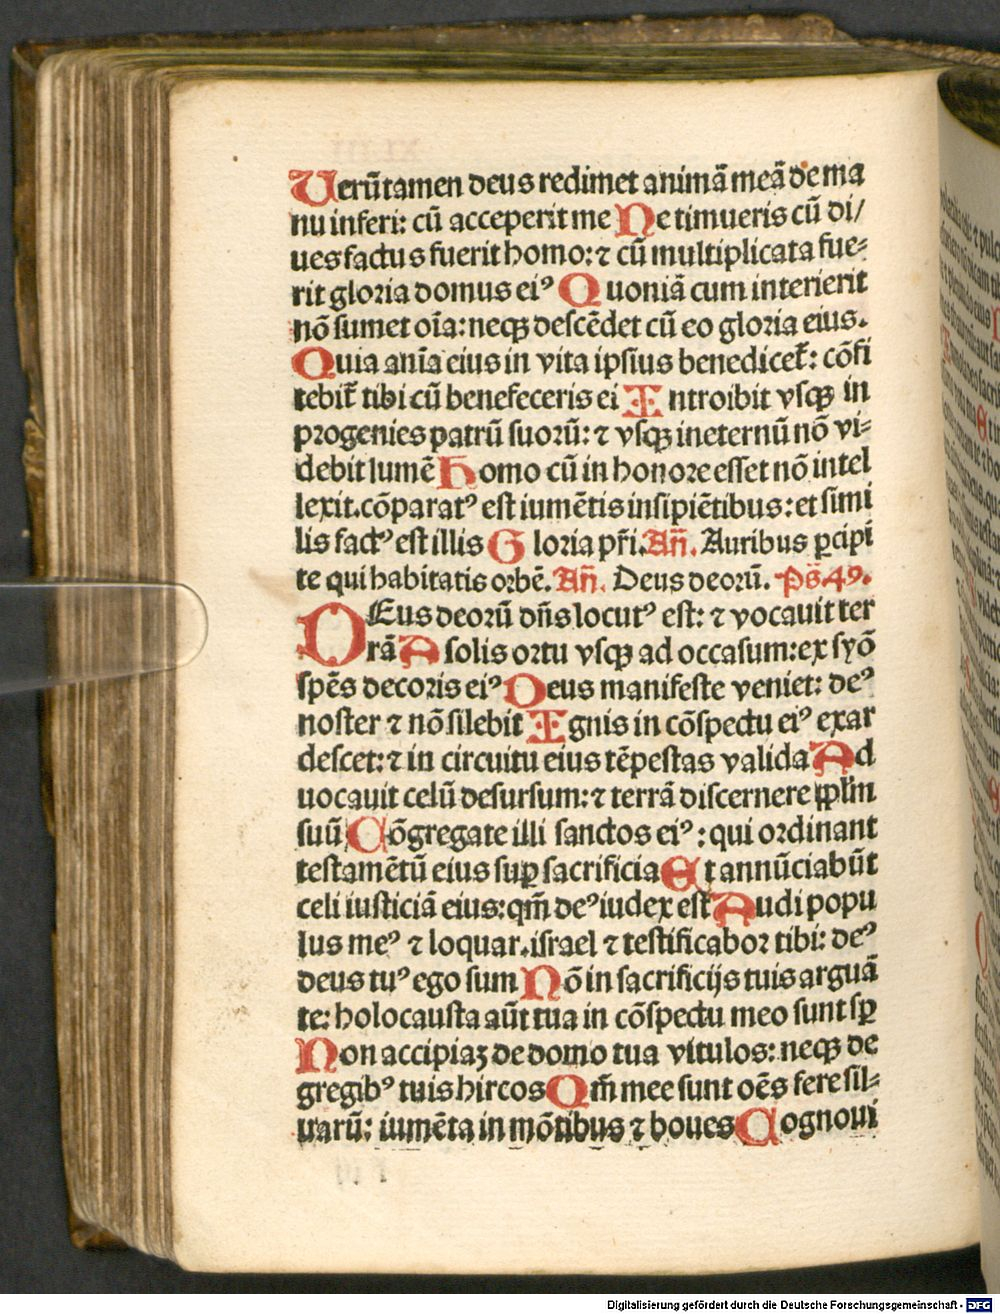 Uerūtamen deus redimet animā meā de ma
nu inferi: cū acceperit me Ne timueris cū di/
ues factus fuerit homo: ⁊ cū multiplicata fue⸗
rit gloria domus eiꝰ Quoniā cum interierit
nō sumet oīa: neqꝫ descēdet cū eo gloria eius.
Quia anīa eius in vita ipsius benedicet̄: cōfi
tebit̄ tibi cū benefeceris ei Introibit vsqꝫ in
progenies patrū suorū: ⁊ vsqꝫ ineternū nō vi⸗
debit lumē Homo cū in honore esset nō intel
lexit. cōparatꝰ est iumētis insipiētibus: et simi
lis factꝰ est illis Gloria pr̄i. Añ. Auribus ꝑcipi
te qui habitatis orbē. Añ. Deus deorū. Ps̄. 49.
DEus deorū dn̄s locutꝰ est: ⁊ vocauit ter
rā A solis ortu vsqꝫ ad occasum: ex syō
spēs decoris eiꝰ Deus manifeste veniet: deꝰ
noster ⁊ nō silebit Ignis in cōspectu eiꝰ exar
descet: ⁊ in circuitu eius tēpestas valida Ad
uocauit celū desursum: ⁊ terrā discernere ppl̄m
suū Cōgregate illi sanctos eiꝰ: qui ordinant
testamētū eius suꝑ sacrificia Et annūciabūt
celi iusticiā eius: qm̄ deꝰ iudex est Audi popu
lus meꝰ ⁊ loquar. israel ⁊ testificabor tibi: deꝰ
deus tuꝰ ego sum Nō in sacrificijs tuis arguā
te: holocausta aūt tua in cōspectu meo sunt sꝑ
Non accipiaꝫ de domo tua vitulos: neqꝫ de
gregibꝰ tuis hircos Qm̄ mee sunt oēs fere sil⸗
uarū: iumēta in mōtibus ⁊ boues Cognoui
Digitalisierung gefördert durch die Deutsche Forschungsgemeinschaft - DFG